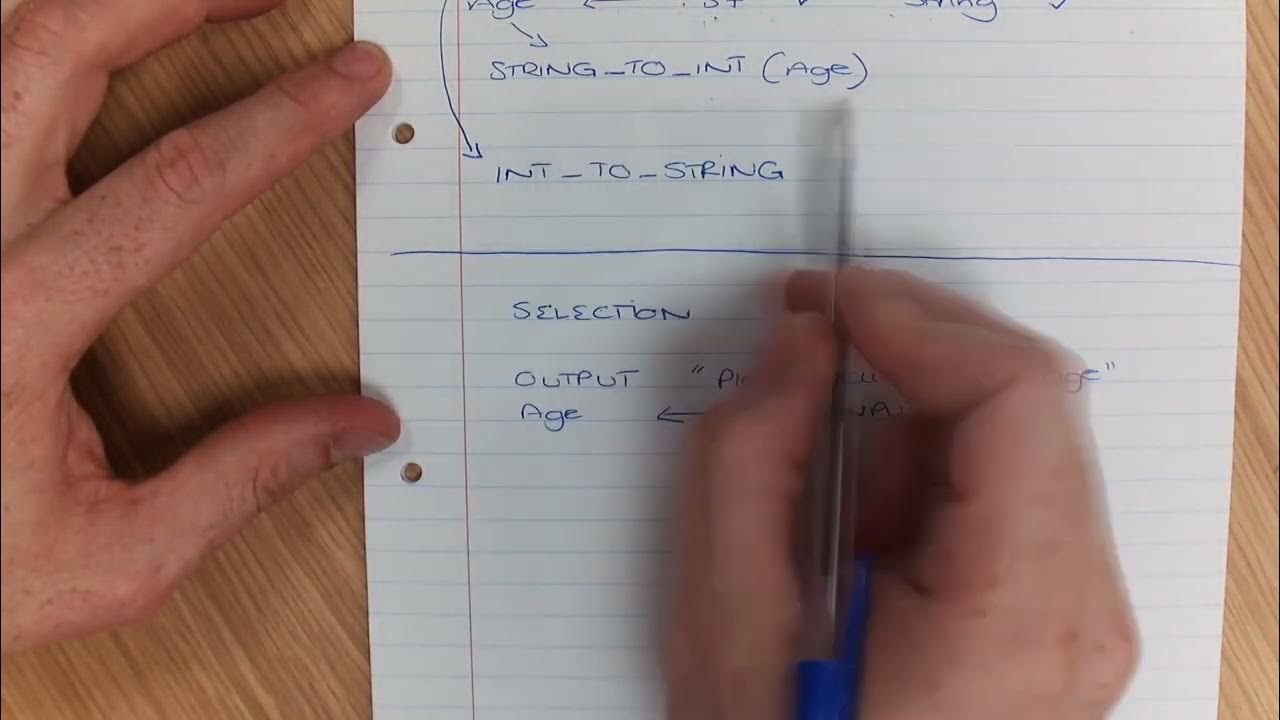 Age ← String ✓
STRING_TO_INT (Age)
INT_TO_STRING
SELECTION
OUTPUT "
Age ←